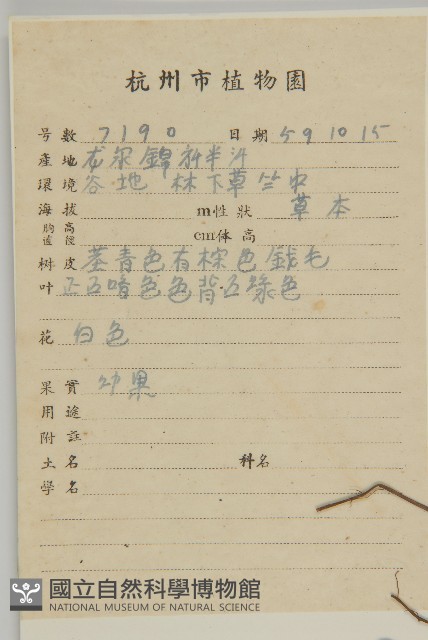 杭州市植物園
号數 7190 日期 59 10 15
產地
環境 谷地 林下草丛中
海拔 m性狀 草本
胸高直徑 cm体高
树皮 茎青色有棕色 毛
叶 正面暗 色背面綠色
花 白色
果實 幼果
用途
附註
土名 科名
學名
國立自然科學博物館
NATIONAL MUSEUM OF NATURAL SCIENCE